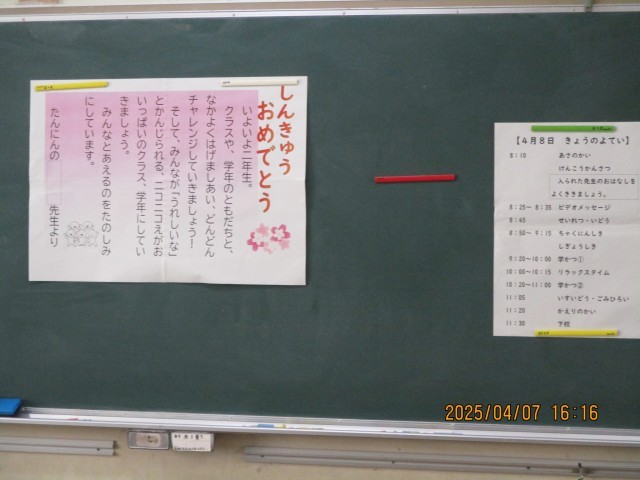 しんきゅう
おめでとう
いよいよ二年生。
クラスや、学年のともだちと、
なかよくはげましあい、どんどん
チャレンジしていきましょう!
そして、みんなが「うれしいな」
とかんじられる、ニコニコえがお
いっぱいのクラス、学年にしてい
きましょう。
みんなとあえるのをたのしみ
にしています。
たんにんの 先生より
【4月8日 きょうのよてい】
8:10 あさのかい
けんこうかんさつ
入られた先生のおはなしを
よくききましょう。
8:25~8:35 ビデオメッセージ
8:45 せいれつ・いどう
8:50~9:15 ちゃくにんしき
しぎょうしき
9:20~10:00 学かつ①
10:00~10:15 リラックスタイム
10:20~11:00 学かつ②
11:05 いすいどう・ごみひろい
11:20 かえりのかい
11:30 下校
2025/04/07 16:16